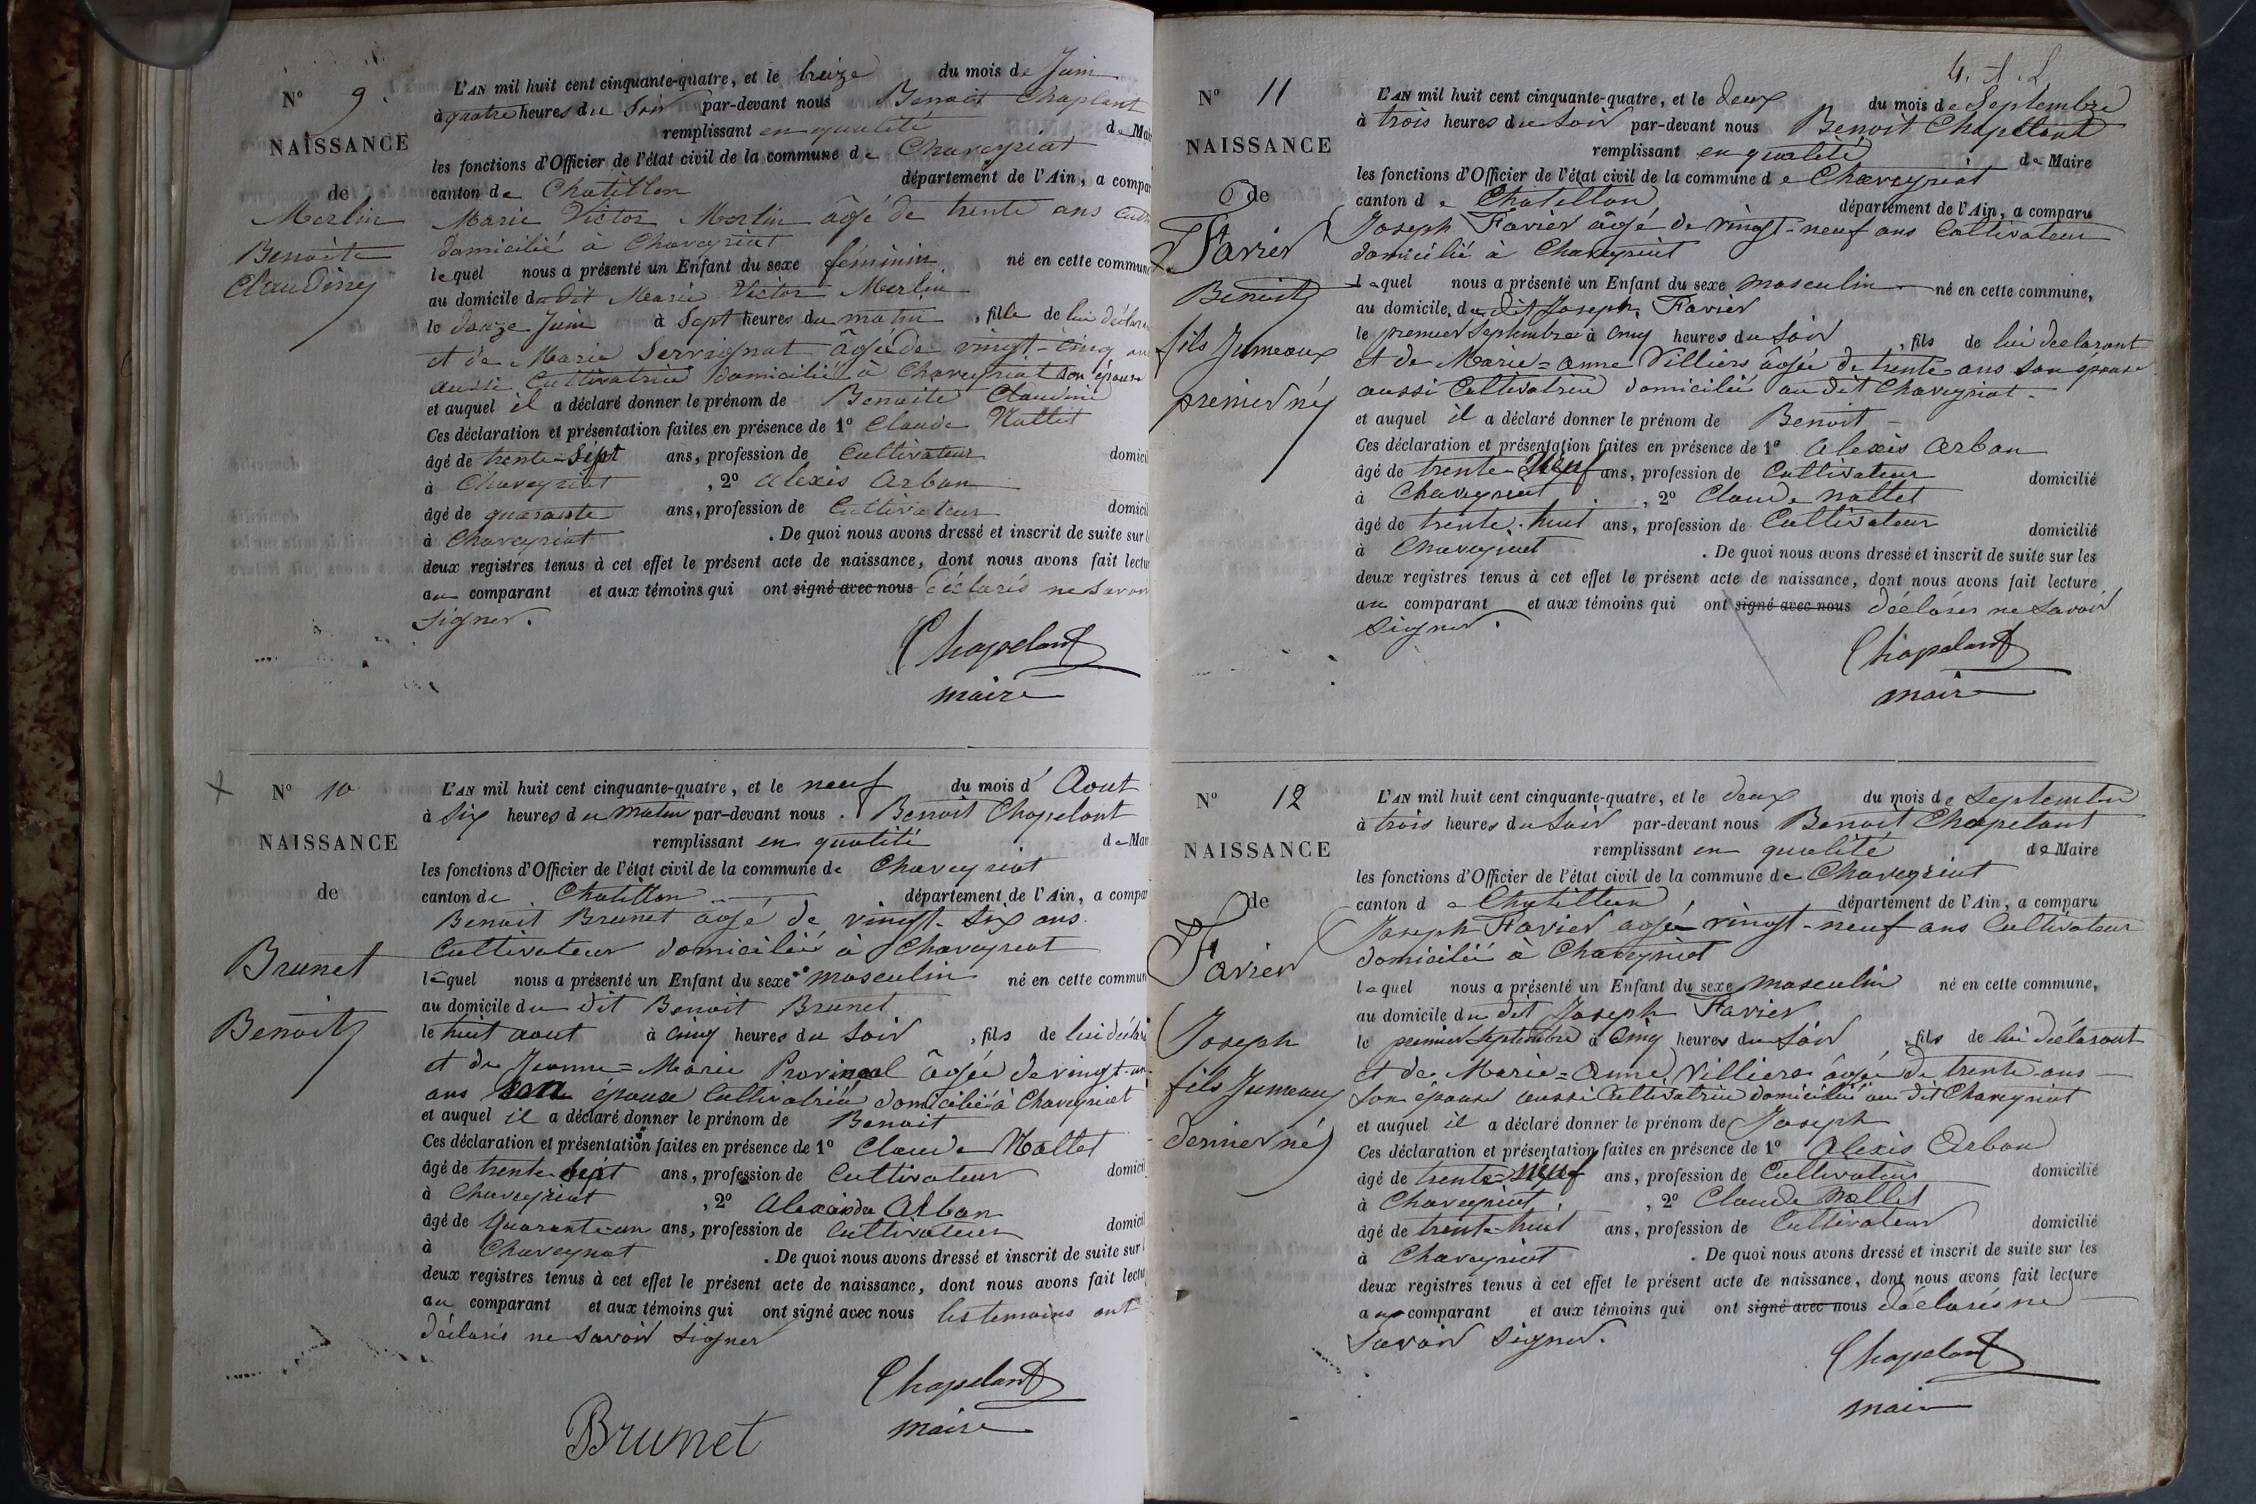 N° 9.
NAISSANCE
de
Merlin
Benoite
Claudine
L'AN mil huit cent cinquante-quatre, et le treize du mois de Juin
à quatre heures du Soir par-devant nous Benoit Chapelant
remplissant en qualité de Mai
les fonctions d'Officier de l'état civil de la commune de Chaveyriat
canton de Chatillon département de l'Ain, a compar
Marie Victor Merlin âgé de trente ans
domicilié à Chaveyriat
lequel nous a présenté un Enfant du sexe féminin né en cette commune
au domicile du dit Marie Victor Merlin
le douze Juin à Sept heures du matin, fille de lui déclara
et de Marie Servignat âgée de vingt-cinq an
aussi Cultivatrice domiciliée à Chaveyriat son épouse
et auquel il a déclaré donner le prénom de Benoite Claudine
Ces déclaration et présentation faites en présence de 1° Claude Nallet
âgé de trente-Sept ans, profession de Cultivateur domicil
à Chaveyriat, 2° alexis arban
âgé de quarante ans, profession de Cultivateur domicil
à Chaveyriat. De quoi nous avons dressé et inscrit de suite sur l
deux registres tenus à cet effet le présent acte de naissance, dont nous avons fait lectu
au comparant et aux témoins qui ont signé avec nous déclarés ne savoir
signer.
Chapelant
maire
N° 10
NAISSANCE
de
Brunet
Benoit
L'AN mil huit cent cinquante-quatre, et le neuf du mois d' Aout
à six heures du matin par-devant nous. Benoit Chapelant
remplissant en qualité de Mai
les fonctions d'Officier de l'état civil de la commune de Chaveyriat
canton de Chatillon département de l'Ain, a compar
Benoit Brunet âgé de vingt-six ans.
Cultivateur domicilié à Chaveyriat
lequel nous a présenté un Enfant du sexe masculin né en cette commun
au domicile du dit Benoit Brunet
le huit aout à cinq heures du soir, fils de lui décla
et de Jeanne=Marie Provincal âgée de vingt-un
ans son épouse Cultivatrice domiciliée à Chaveyriat
et auquel il a déclaré donner le prénom de Benoit
Ces déclaration et présentation faites en présence de 1° Claude Nallet
âgé de trente sept ans, profession de Cultivateur domicil
à Chaveyriat, 2° alexandre arban
âgé de Quarante-un ans, profession de Cultivateur domicil
à Chaveyriat. De quoi nous avons dressé et inscrit de suite sur l
deux registres tenus à cet effet le présent acte de naissance, dont nous avons fait lectu
au comparant et aux témoins qui ont signé avec nous les temoins ont
déclarés ne savoir signer
Chapelant
maire
Brunet
N° 11
NAISSANCE
de
Favier
Benoit
fils Jumeaux
premier né
L'AN mil huit cent cinquante-quatre, et le deux du mois de Septembre
à trois heures du soir par-devant nous Benoit Chapelant
remplissant en qualité de Maire
les fonctions d'Officier de l'état civil de la commune de Chaveyriat
canton de Chatillon département de l'Ain, a comparu
Joseph Favier âgé de vingt-neuf ans Cultivateur
domicilié à Chaveyriat
lequel nous a présenté un Enfant du sexe masculin né en cette commune,
au domicile du dit Joseph Favier
le premier Septembre à cinq heures du soir, fils de lui déclarant
et de Marie=anne Villiers âgée de trente ans son épouse
aussi Cultivatrice domiciliée au dit Chaveyriat.
et auquel il a déclaré donner le prénom de Benoit
Ces déclaration et présentation faites en présence de 1° alexis arban
âgé de trente-neuf ans, profession de Cultivateur domicilié
à Chaveyriat, 2° Claude nallet
âgé de trente-huit ans, profession de Cultivateur domicilié
à Chaveyriat. De quoi nous avons dressé et inscrit de suite sur les
deux registres tenus à cet effet le présent acte de naissance, dont nous avons fait lecture
au comparant et aux témoins qui ont signé avec nous déclarés ne savoir
signer.
Chapelant
maire
N° 12
NAISSANCE
de
Favier
Joseph
fils Jumeaux
dernier né
L'AN mil huit cent cinquante-quatre, et le deux du mois de Septembre
à trois heures du soir par-devant nous Benoit Chapelant
remplissant en qualité de Maire
les fonctions d'Officier de l'état civil de la commune de Chaveyriat
canton de Chatillon département de l'Ain, a comparu
Joseph Favier agé vingt-neuf ans Cultivateur
domicilié à Chaveyriat
lequel nous a présenté un Enfant du sexe masculin né en cette commune,
au domicile du dit Joseph Favier
le premier Septembre à cinq heures du soir, fils de lui déclarant
et de Marie=anne Villiers âgée de trente-ans
son épouse aussi Cultivatrice domiciliée au dit Chaveyriat
et auquel il a déclaré donner le prénom de Joseph
Ces déclaration et présentation faites en présence de 1° alexis arban
âgé de trente=neuf ans, profession de Cultivateur domicilié
à Chaveyriat, 2° Claude Nallet
âgé de trente-huit ans, profession de Cultivateur domicilié
à Chaveyriat. De quoi nous avons dressé et inscrit de suite sur les
deux registres tenus à cet effet le présent acte de naissance, dont nous avons fait lecture
au comparant et aux témoins qui ont signé avec nous déclarés ne
savoir signer.
Chapelant
maire